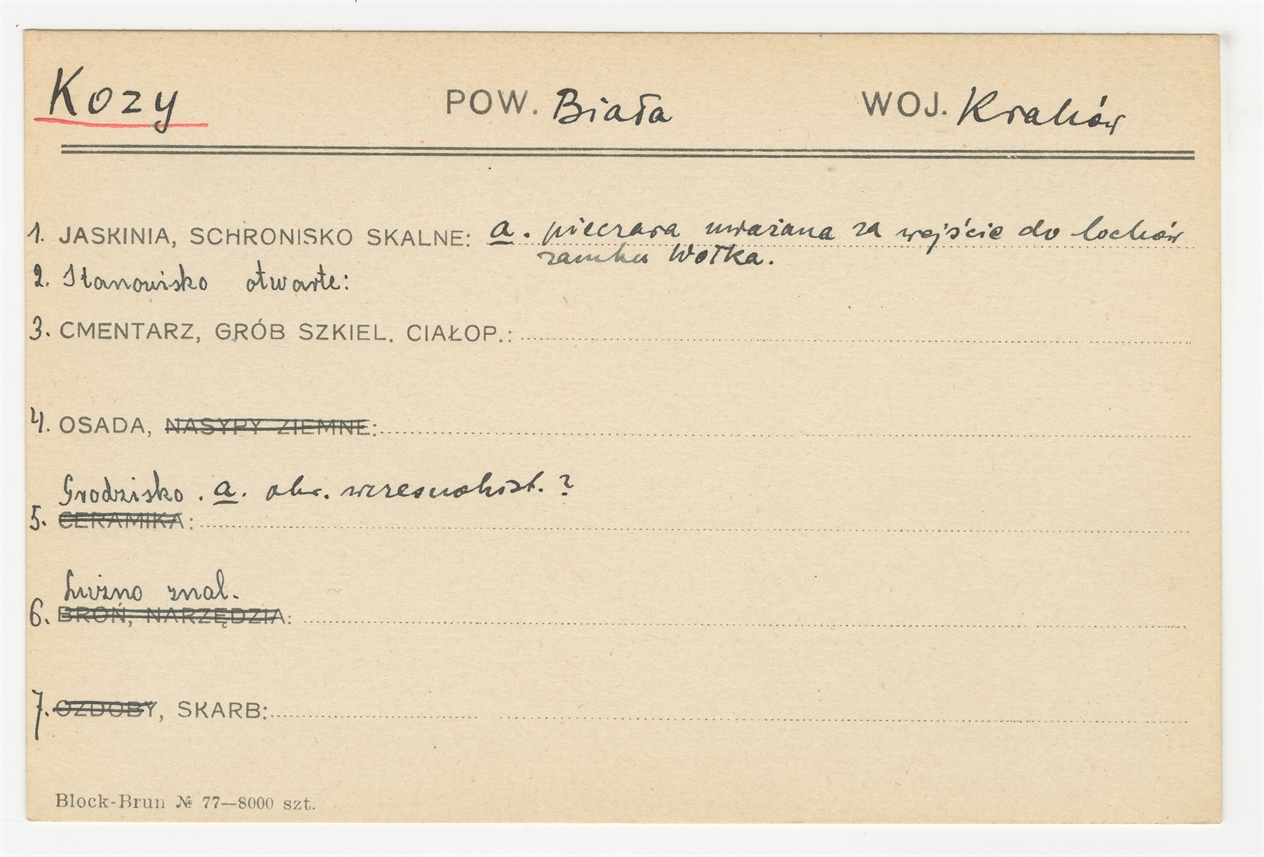 Kozy POW. Biała WOJ. Kraków
1. JASKINIA, SCHRONISKO SKALNE: a. pieczara uważana za wejście do lochów
zamku Wołka.
2. Stanowisko otwarte:
3. CMENTARZ, GRÓB SZKIEL. CIAŁOP.:
4. OSADA, NASYPY ZIEMNE:
Grodzisko. a. okr. wczesnohist.?
5. CERAMIKA:
Luźno znal.
6. BROŃ, NARZĘDZIA:
7. OZDOBY, SKARB:
Block-Brun № 77—8000 szt.